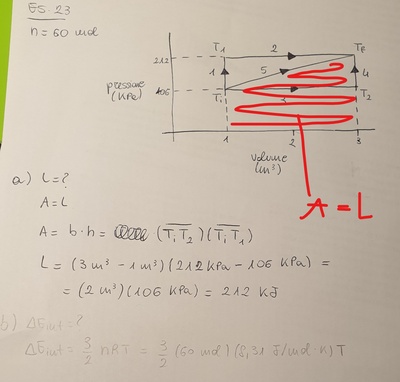 ES. 23
n = 60 mol
pressione
(KPa)
212
106
T1
2
TF
1
5
4
Ti
3
T2
1
2
3
volume
(m³)
A = L
a) L = ?
A = L
A = b·h = (TiT2)(TiT1)
L = (3 m³ - 1 m³)(212 KPa - 106 KPa) =
= (2 m³)(106 KPa) = 212 KJ
b) ΔEint = ?
ΔEint = 3/2 nRT = 3/2 (60 mol)(8,31 J/mol·K)T